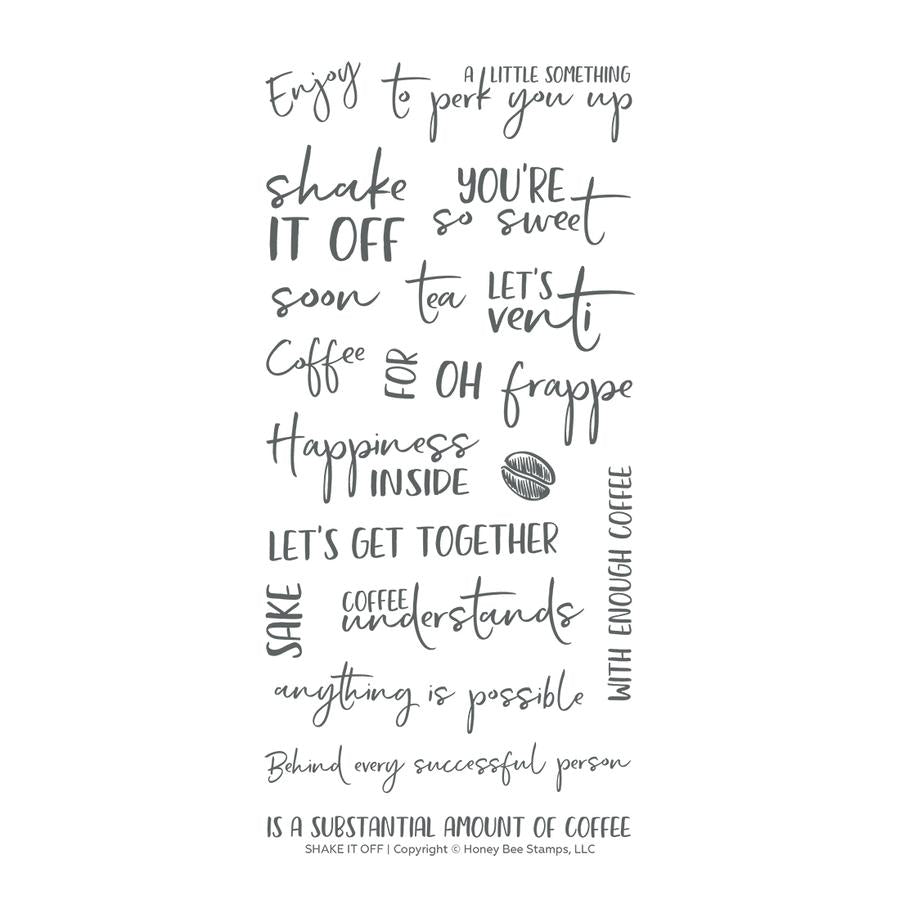 Enjoy
A LITTLE SOMETHING
to perk you up
shake
IT OFF
YOU'RE
so sweet
soon
tea
LET'S
venti
Coffee
FOR
OH frappe
Happiness
INSIDE
WITH ENOUGH COFFEE
LET'S GET TOGETHER
SAKE
COFFEE
understands
anything is possible
Behind every successful person
IS A SUBSTANTIAL AMOUNT OF COFFEE
SHAKE IT OFF | Copyright © Honey Bee Stamps, LLC